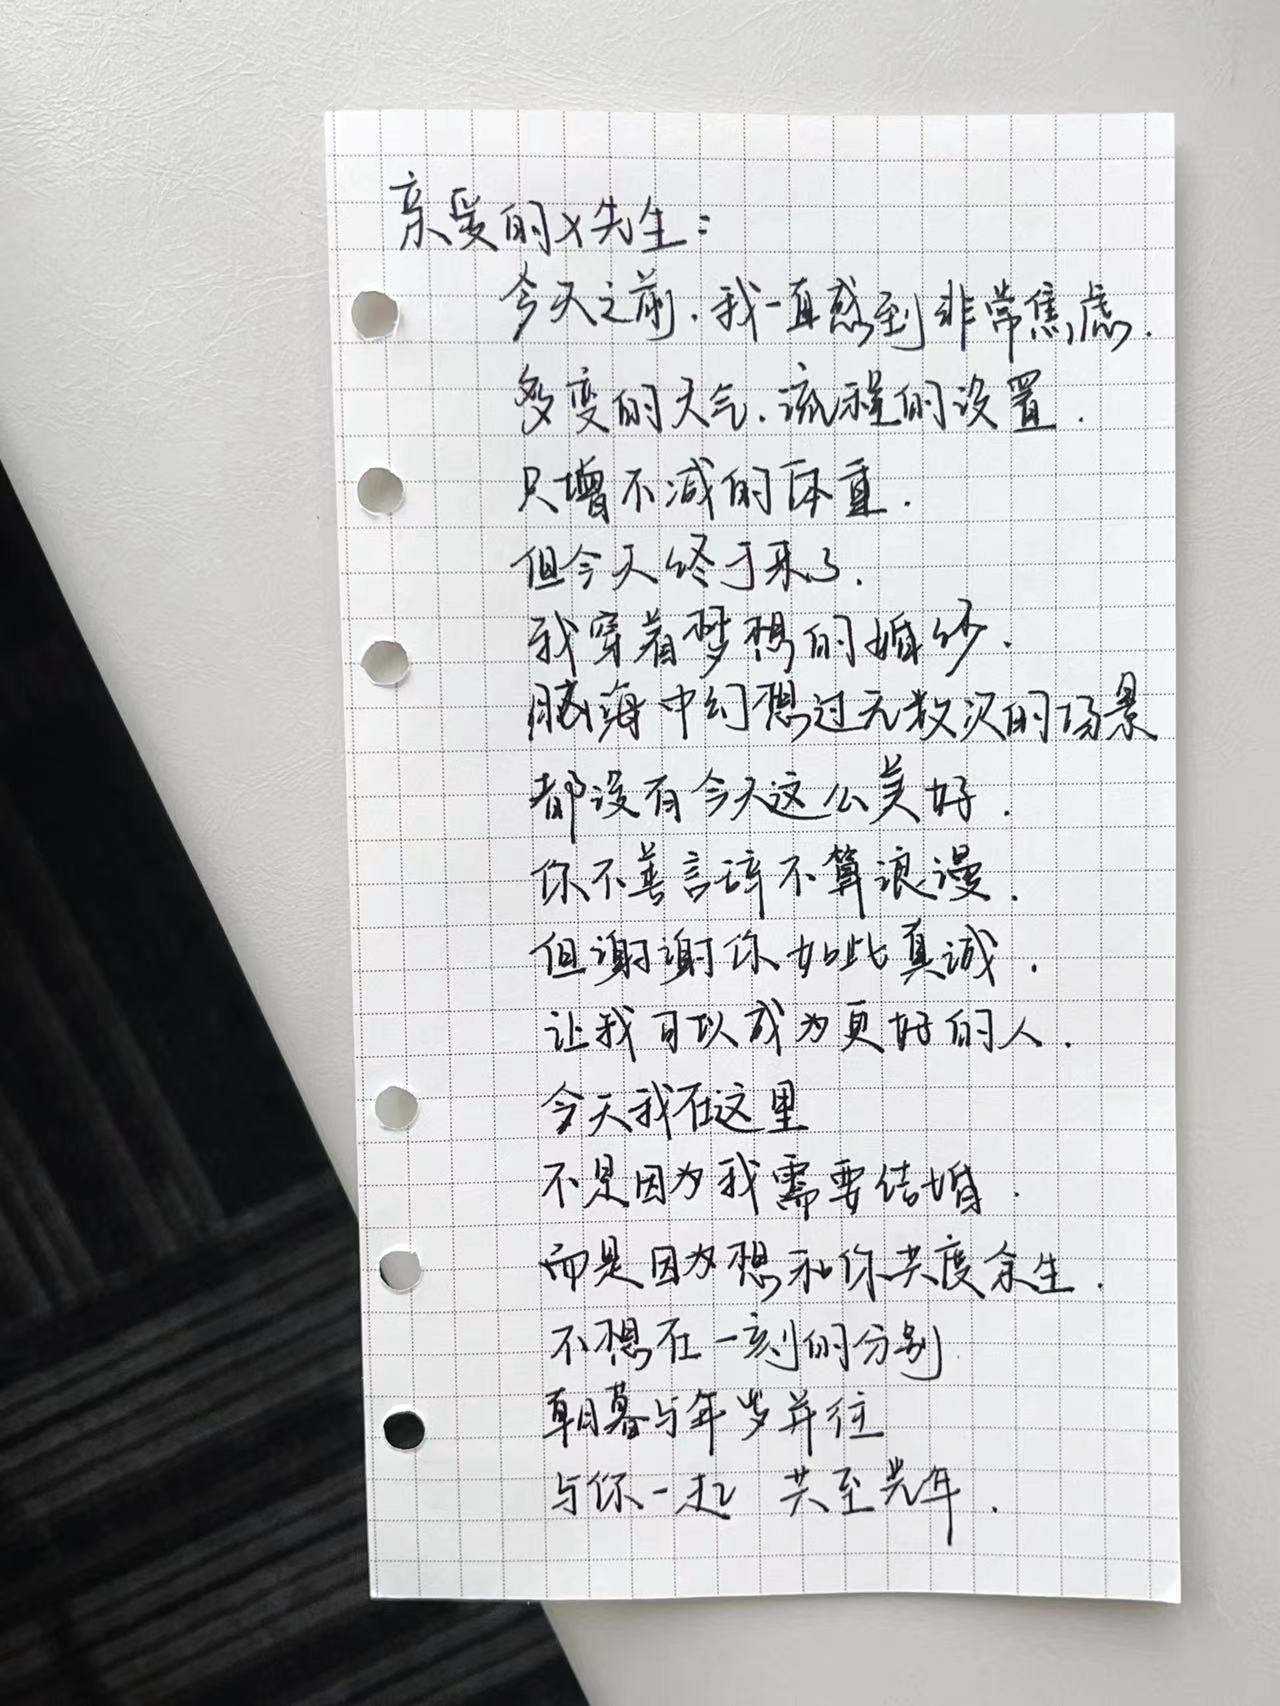 亲爱的x先生:
今天之前.我一直感到非常焦虑.
多变的天气.流程的设置.
只增不减的体重.
但今天终于来了.
我穿着梦想的婚纱.
脑海中幻想过无数次的场景
都没有今天这么美好.
你不善言辞不算浪漫.
但谢谢你如此真诚.
让我可以成为更好的人.
今天我在这里
不是因为我需要结婚.
而是因为想和你共度余生.
不想在一刻的分别
朝暮与年岁并往
与你一起 共至光年.